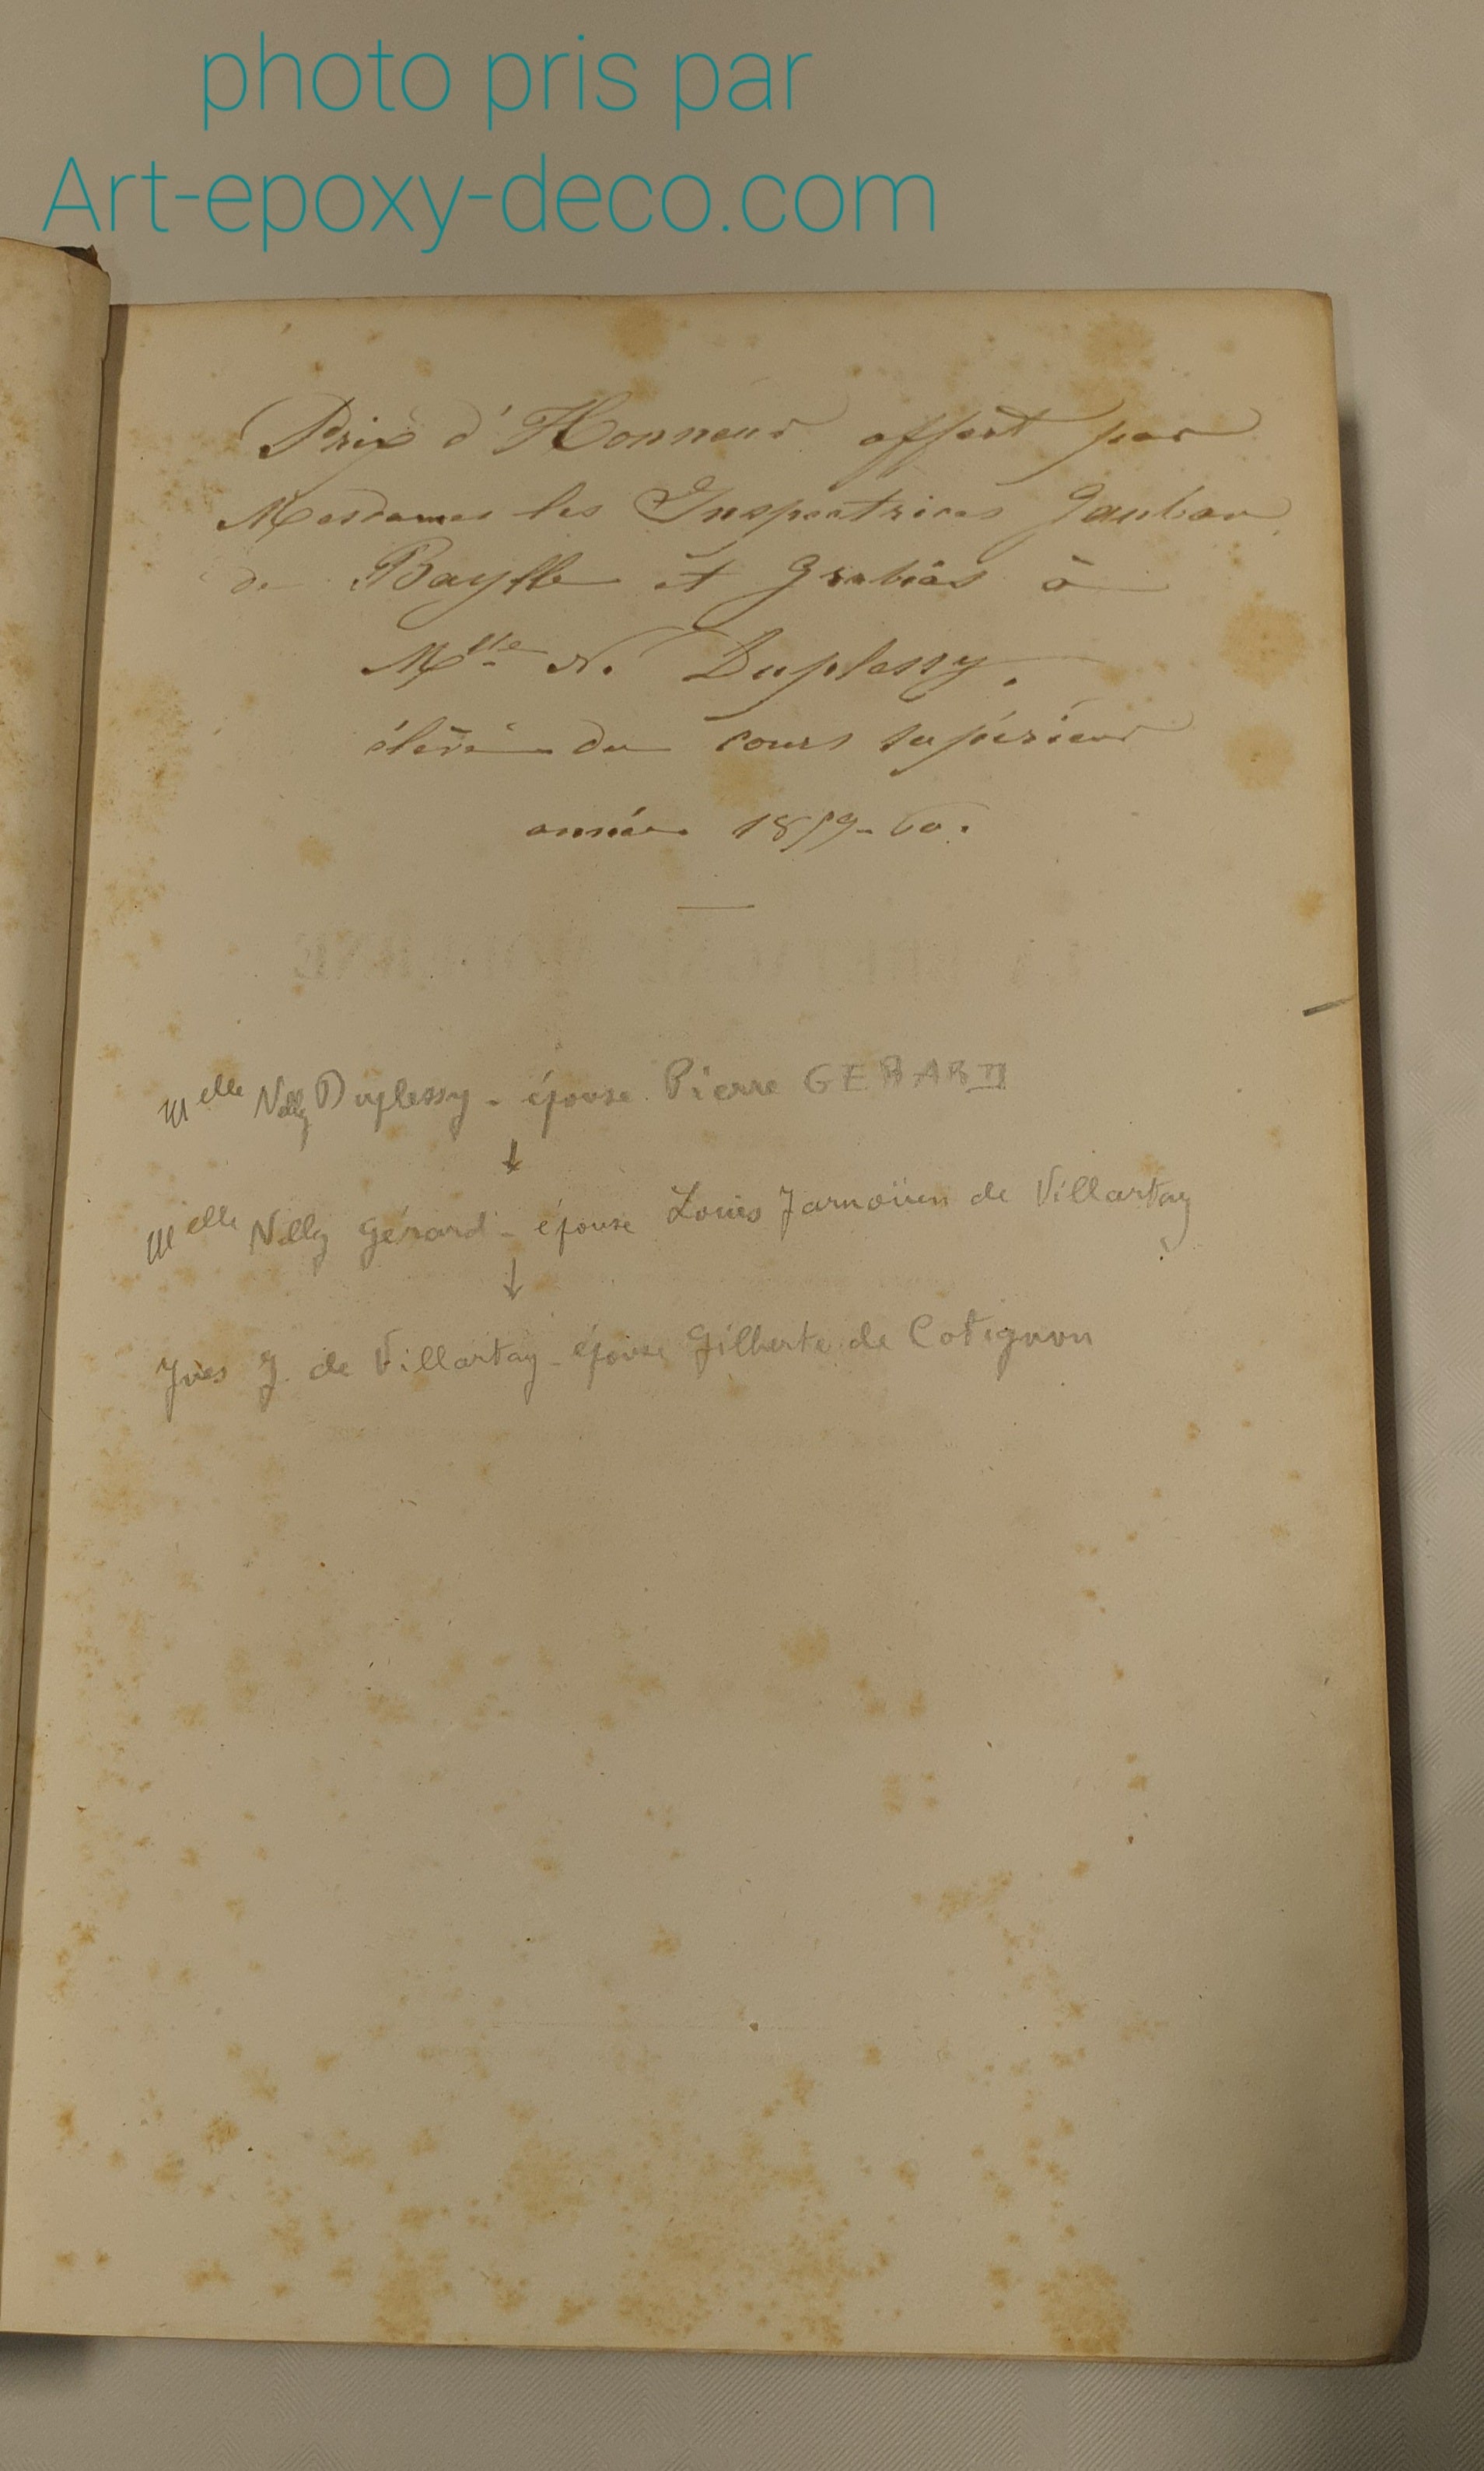 photo pris par
Art-epoxy-deco.com
Prix d'Honneur offert par
Mesdames les Inspectrices
de Baylle et à
Mlle N. Duplessy.
élève du cours supérieur
année 1859-60.
Melle Nelly Duplessy - épouse Pierre GERARD
↓
Melle Nelly Gérard - épouse Louis Jarnoüen de Villartay
↓
Yves J. de Villartay - épouse Gilberte de Cotignon